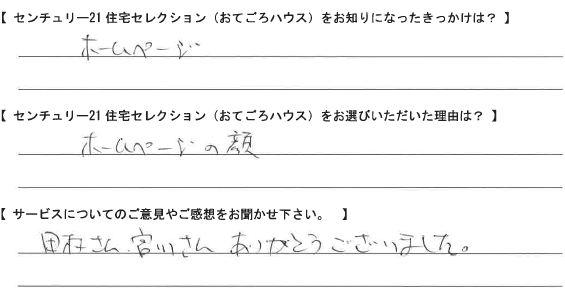 【 センチュリー21 住宅セレクション（おてごろハウス）をお知りになったきっかけは？ 】
ホームページ
【 センチュリー21 住宅セレクション（おてごろハウス）をお選びいただいた理由は？ 】
ホームページの顔
【 サービスについてのご意見やご感想をお聞かせ下さい。 】
田村さん、宮川さん ありがとうございました。